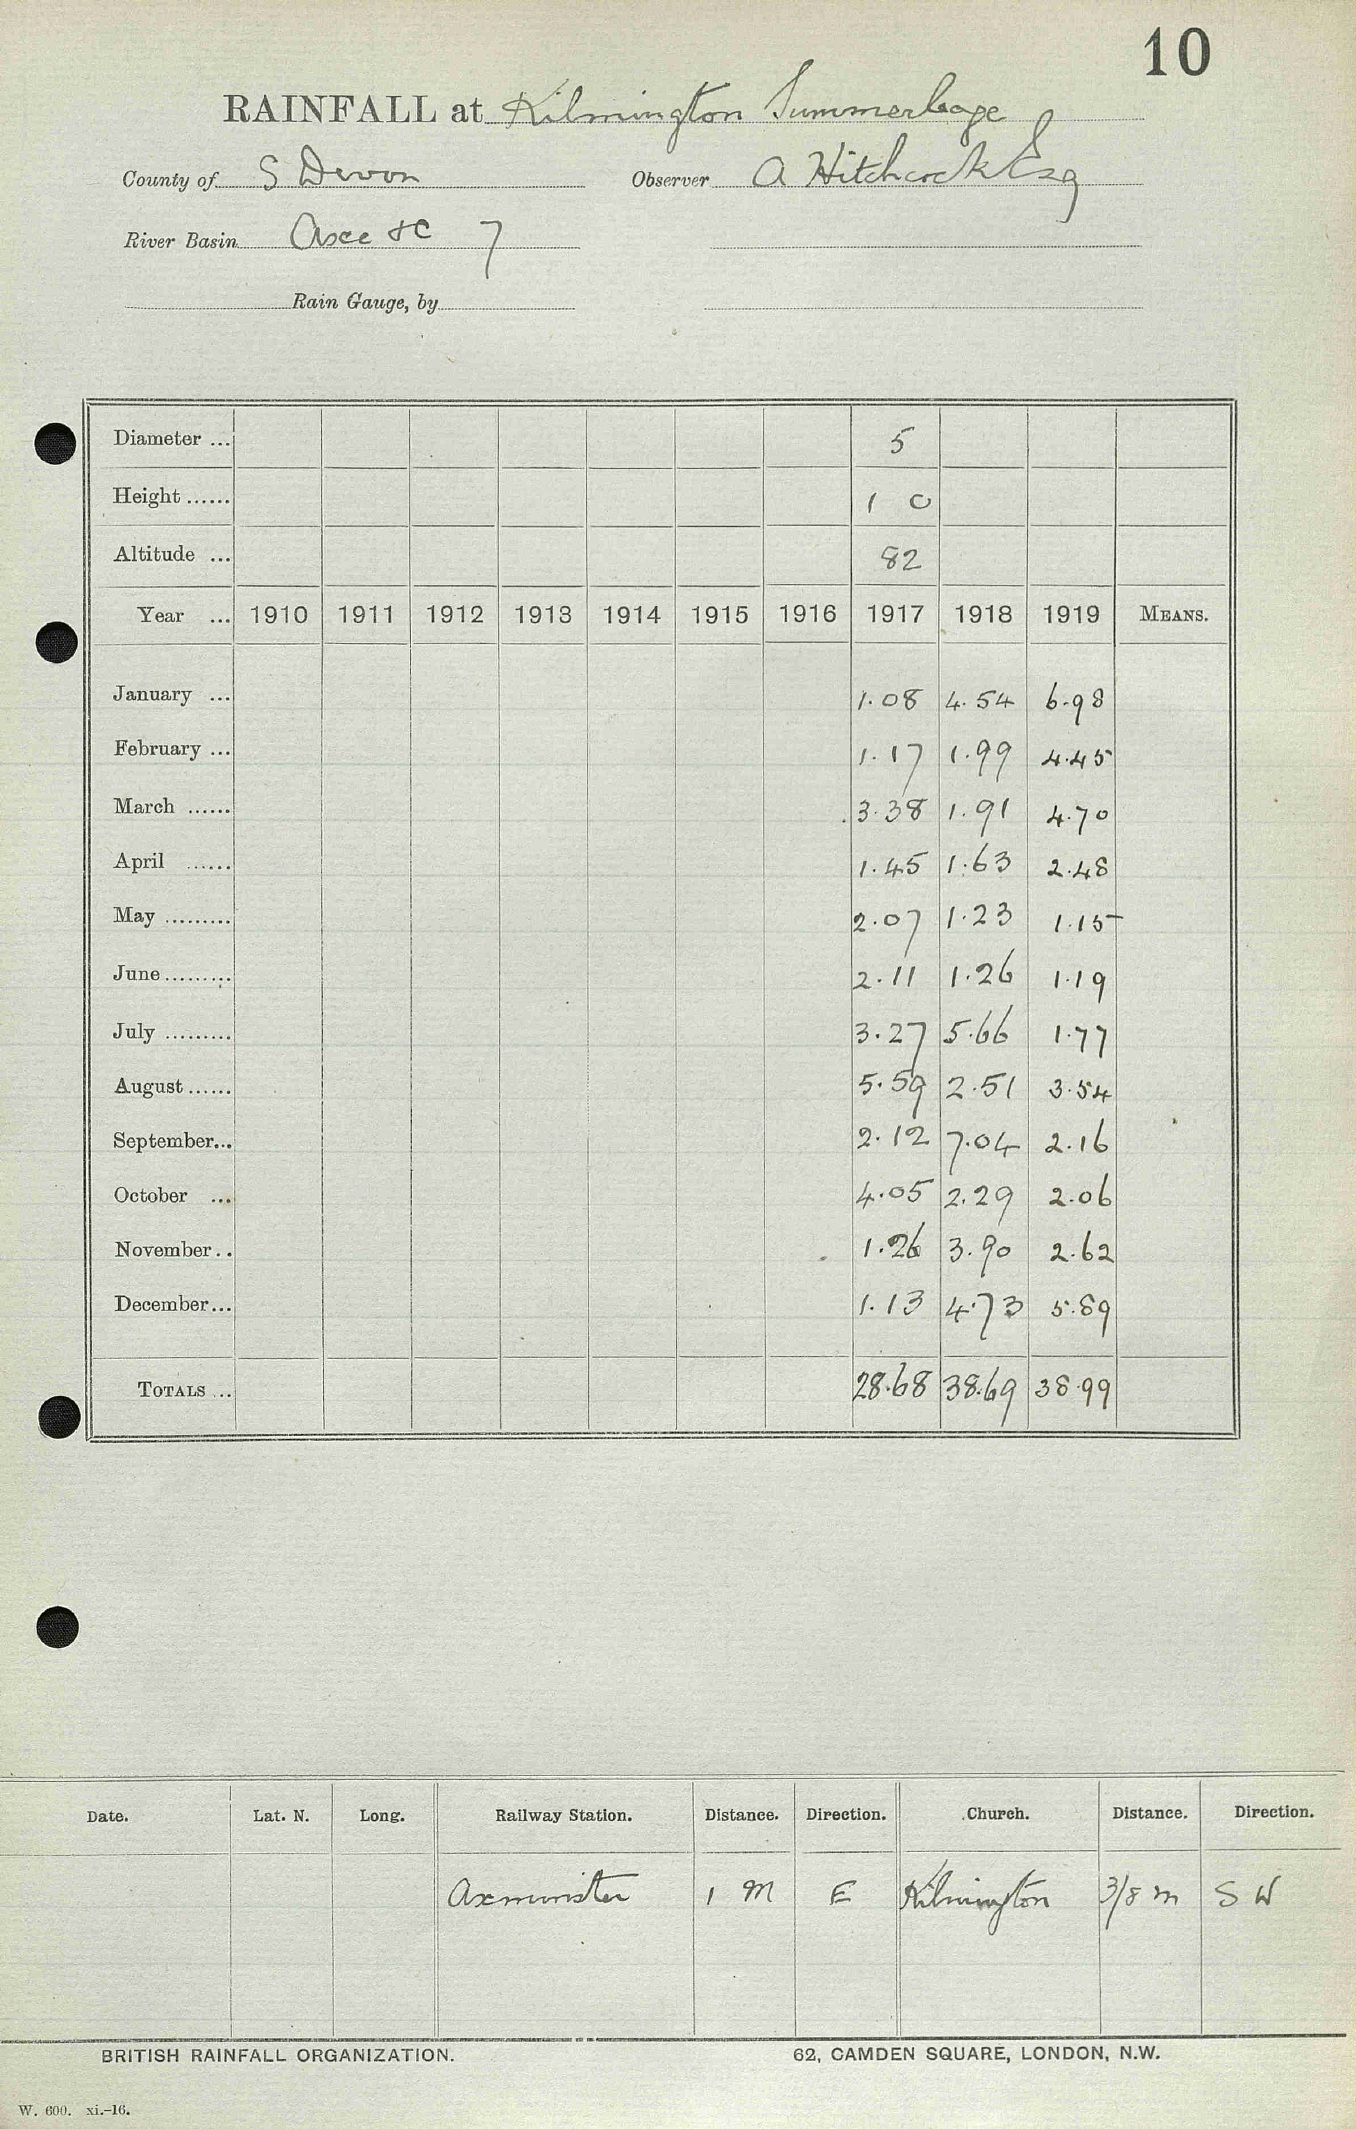 10
RAINFALL at Kilmington Summerleaze
County of S Devon Observer A Hitchcock Esq
River Basin Axe &c 7
Rain Gauge, by
Diameter ... 5
Height ...... 1 0
Altitude ... 82
Year ... 1910 1911 1912 1913 1914 1915 1916 1917 1918 1919 MEANS.
January ... 1.08 4.54 6.98
February ... 1.17 1.99 4.45
March ...... 3.38 1.91 4.70
April ...... 1.45 1.63 2.48
May ......... 2.07 1.23 1.15
June ......... 2.11 1.26 1.19
July ......... 3.27 5.66 1.77
August ...... 5.59 2.51 3.54
September... 2.12 7.04 2.16
October ... 4.05 2.29 2.06
November .. 1.26 3.90 2.62
December... 1.13 4.73 5.89
TOTALS ... 28.68 38.69 38.99
Date. Lat. N. Long. Railway Station. Distance. Direction. Church. Distance. Direction.
Axminster 1 M E Kilmington 3/8 m S W
BRITISH RAINFALL ORGANIZATION. 62, CAMDEN SQUARE, LONDON, N.W.
W. 600. xi.-16.